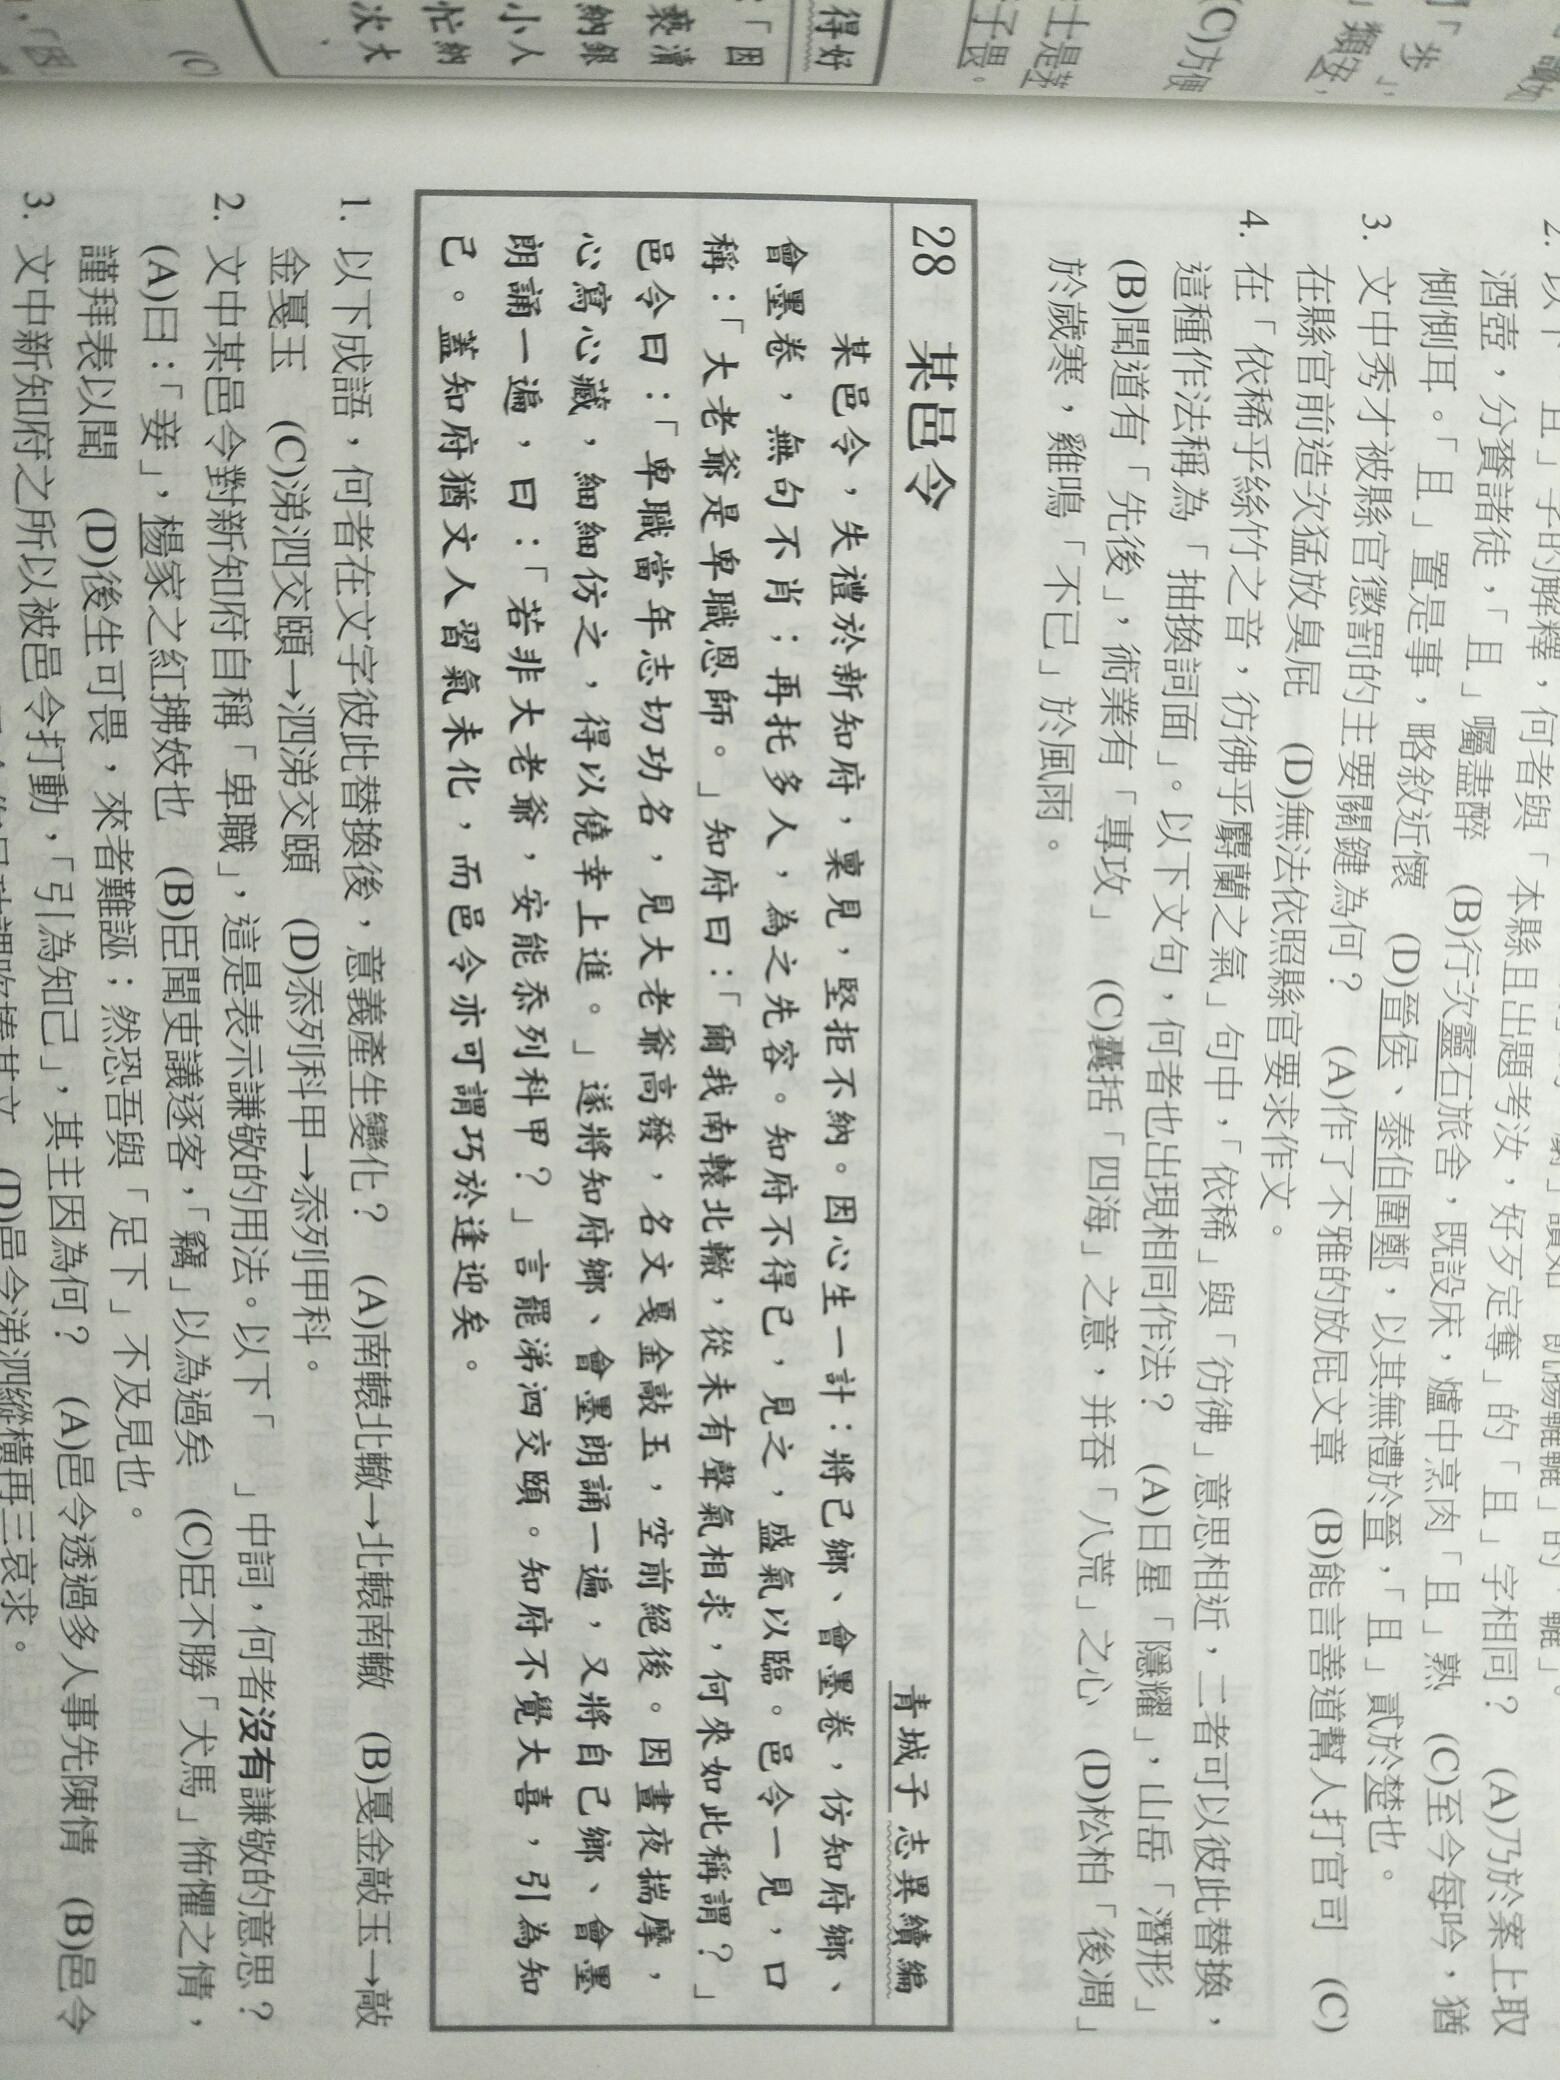 得好
「因
褻瀆
納銀
小人
忙納
次大
(C)方便
子畏。
2. 以下「且」字的解釋，何者與「本縣且出題考汝，好歹定奪」的「且」字相同？　(A)乃於案上取
酒壺，分賚諸徒，「且」囑盡醉　(B)行次靈石旅舍，既設床，爐中烹肉「且」熟　(C)至今每吟，猶
惻惻耳。「且」置是事，略敘近懷　(D)晉侯、秦伯圍鄭，以其無禮於晉，「且」貳於楚也。
3. 文中秀才被縣官懲罰的主要關鍵為何？　(A)作了不雅的放屁文章　(B)能言善道幫人打官司　(C)
在縣官前造次猛放臭屁　(D)無法依照縣官要求作文。
4. 在「依稀乎絲竹之音，彷彿乎麝蘭之氣」句中，「依稀」與「彷彿」意思相近，二者可以彼此替換，
這種作法稱為「抽換詞面」。以下文句，何者也出現相同作法？　(A)日星「隱耀」，山岳「潛形」
(B)聞道有「先後」，術業有「專攻」　(C)囊括「四海」之意，并吞「八荒」之心　(D)松柏「後凋」
於歲寒，雞鳴「不已」於風雨。
28　某邑令　青城子 志異續編
某邑令，失禮於新知府，稟見，堅拒不納。因心生一計：將己鄉、會墨卷，仿知府鄉、
會墨卷，無句不肖；再托多人，為之先容。知府不得已，見之，盛氣以臨。邑令一見，口
稱：「大老爺是卑職恩師。」知府曰：「爾我南轅北轍，從未有聲氣相求，何來如此稱謂？」
邑令曰：「卑職當年志切功名，見大老爺高發，名文戛金敲玉，空前絕後。因晝夜揣摩，
心寫心藏，細細仿之，得以僥幸上進。」遂將知府鄉、會墨朗誦一遍，又將自己鄉、會墨
朗誦一遍，曰：「若非大老爺，安能忝列科甲？」言罷涕泗交頤。知府不覺大喜，引為知
己。蓋知府猶文人習氣未化，而邑令亦可謂巧於逢迎矣。
1. 以下成語，何者在文字彼此替換後，意義產生變化？　(A)南轅北轍→北轅南轍　(B)戛金敲玉→敲
金戛玉　(C)涕泗交頤→泗涕交頤　(D)忝列科甲→忝列甲科。
2. 文中某邑令對新知府自稱「卑職」，這是表示謙敬的用法。以下「　」中詞，何者沒有謙敬的意思？
(A)曰：「妾」，楊家之紅拂妓也　(B)臣聞吏議逐客，「竊」以為過矣　(C)臣不勝「犬馬」怖懼之情，
謹拜表以聞　(D)後生可畏，來者難誣；然恐吾與「足下」不及見也。
3. 文中新知府之所以被邑令打動，「引為知己」，其主因為何？　(A)邑令透過多人事先陳情　(B)邑令
(D)邑令涕泗縱橫再三哀求。